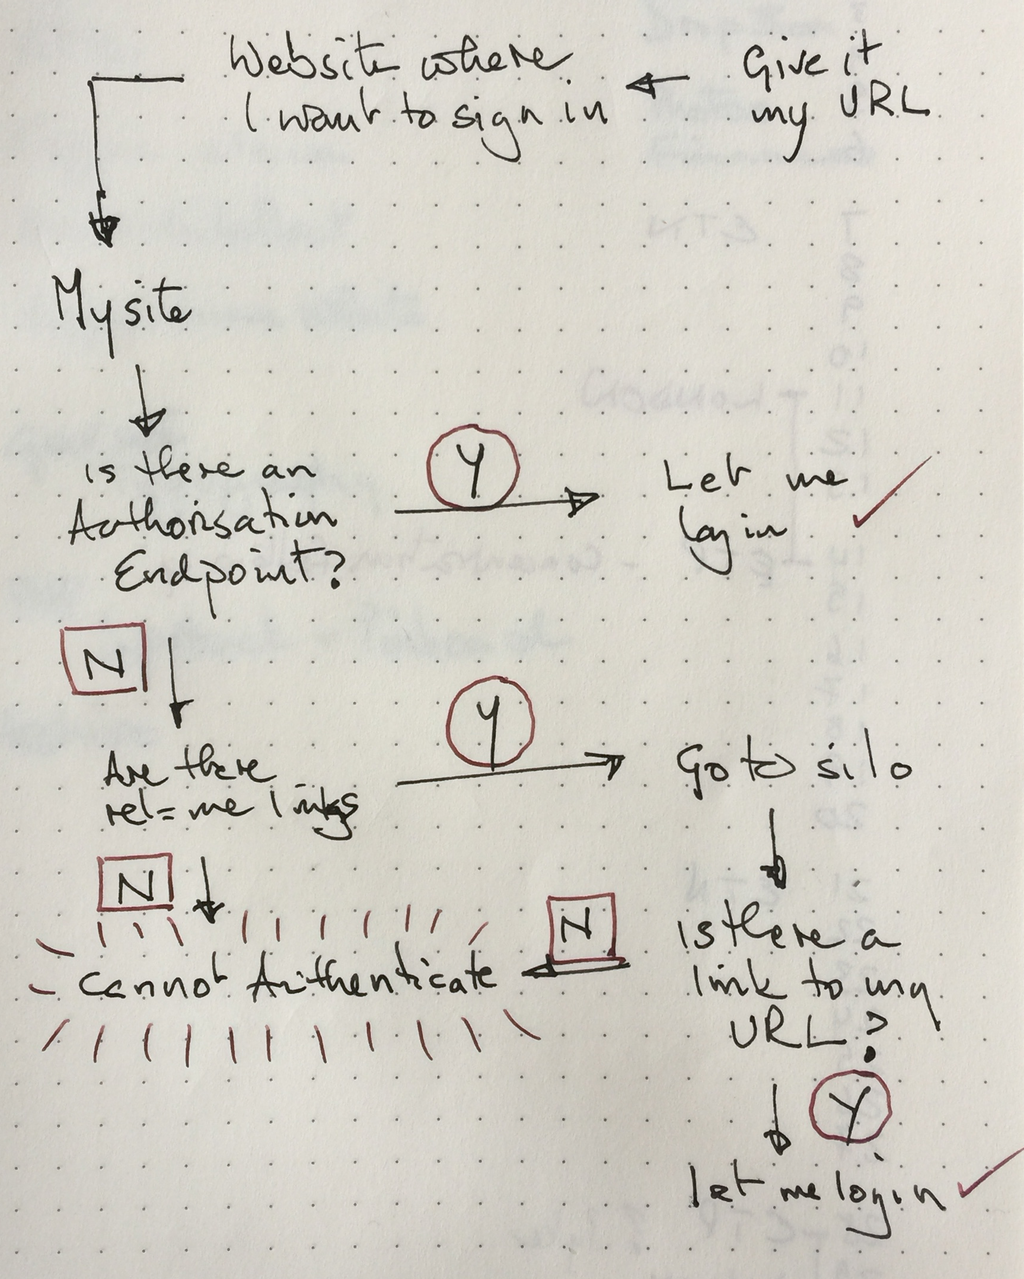 Website where
I want to sign in
Give it
my URL
My site
is there an
Authorisation
Endpoint?
Y
Let me
log in
N
Are there
rel=me links
Y
Go to silo
N
Cannot Authenticate
N
is there a
link to my
URL?
Y
let me login